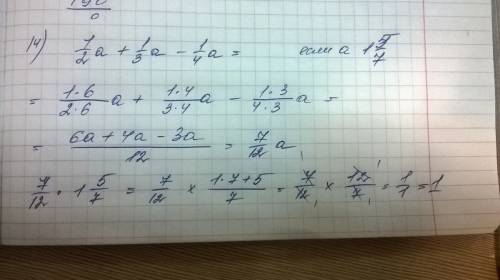 190
0
14) 1/2 a + 1/3 a - 1/4 a = если a 1 5/7
= 1·6/2·6 a + 1·4/3·4 a - 1·3/4·3 a =
= 6a + 4a - 3a/12 = 7/12 a,
7/12 · 1 5/7 = 7/12 × 1·7+5/7 = 7/12 1 × 12 1/7 1 = 1/1 = 1